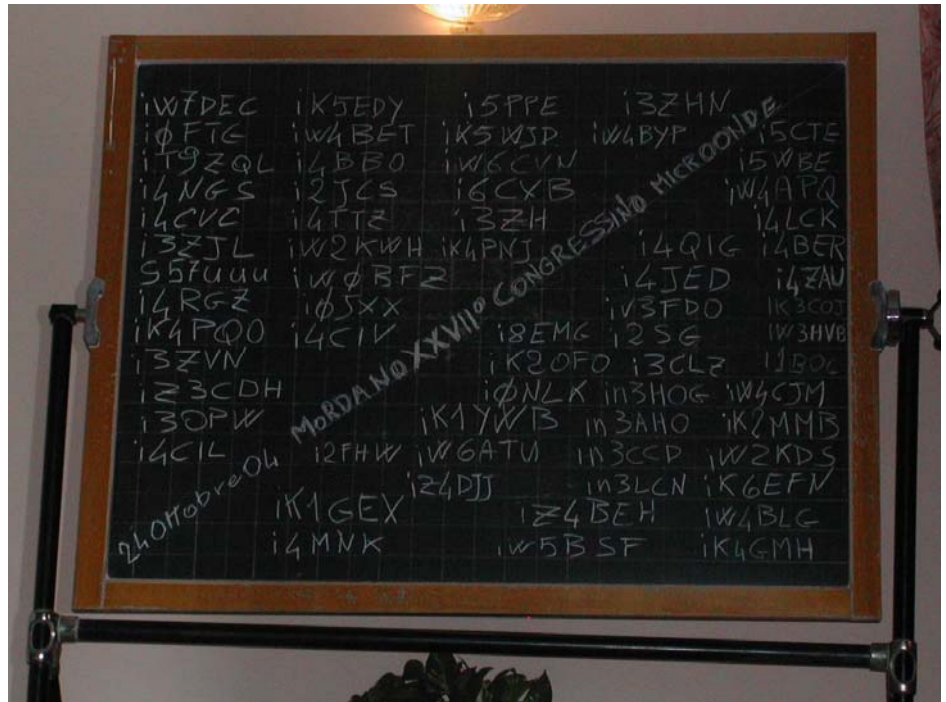 iw7DEC iK5EDY i5PPE i3ZHN
iφFTG iw4BET iK5WJD iw4BYP i5CTE
iT9ZQL i4BBO iw6CVN i5WBE
i4NGS i2JCS i6CXB iw4APQ
i4CVC i4TTZ i3ZH i4LCK
i3ZJL iw2KWH iK4PNJ i4QIG i4BER
S57uuu iwφBFZ i4JED i4ZAU
i4RGZ iφ5XX iv3FDO IK3COJ
iK4PQO i4CIV i8EMG i2SG IW3HVB
i3ZVN iK2OFO i3CLZ I1BOC
iZ3CDH iφNLK in3HOG iw4CJM
i3OPW iK1YWB in3AHO iK2MMB
i4CIL i2FHW iW6ATU in3CCD iw2KDS
iZ4DJJ in3LCN iK6EFN
iK1GEX iZ4BEH iw4BLG
i4MNK iw5BSF iK4GMH
24 Ottobre 04 MORDANO XXVII° CONGRESSINO MICROONDE